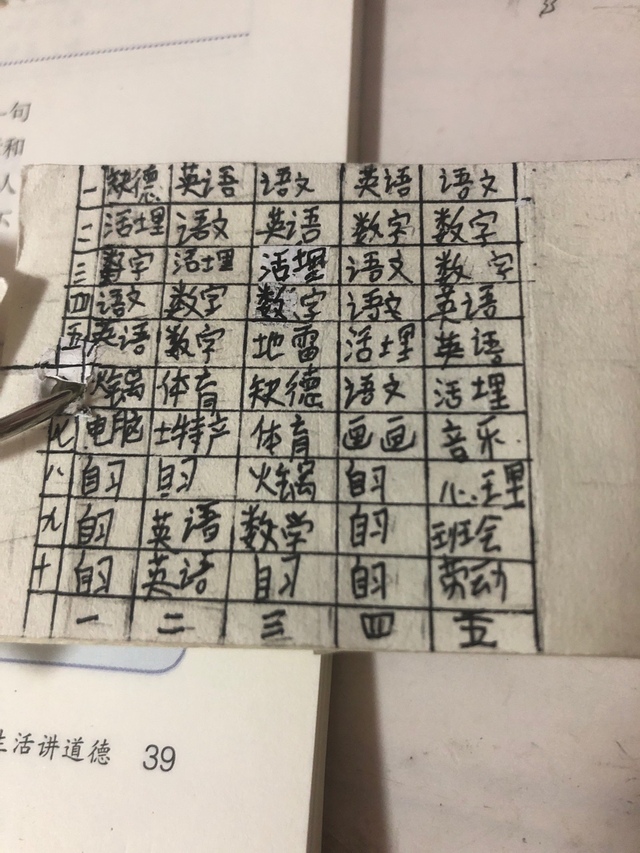 一句
和
人
不
一 缺德 英语 语文 英语 语文
二 活埋 语文 英语 数字 数字
三 数字 活埋 活埋 语文 数字
四 语文 数字 数字 语文 英语
五 英语 数字 地雷 活埋 英语
火锅 体育 缺德 语文 活埋
七 电脑 土特产 体育 画画 音乐
八 自习 自习 火锅 自习 心理
九 自习 英语 数学 自习 班会
十 自习 英语 自习 自习 劳动
一 二 三 四 五
生活讲道德 39